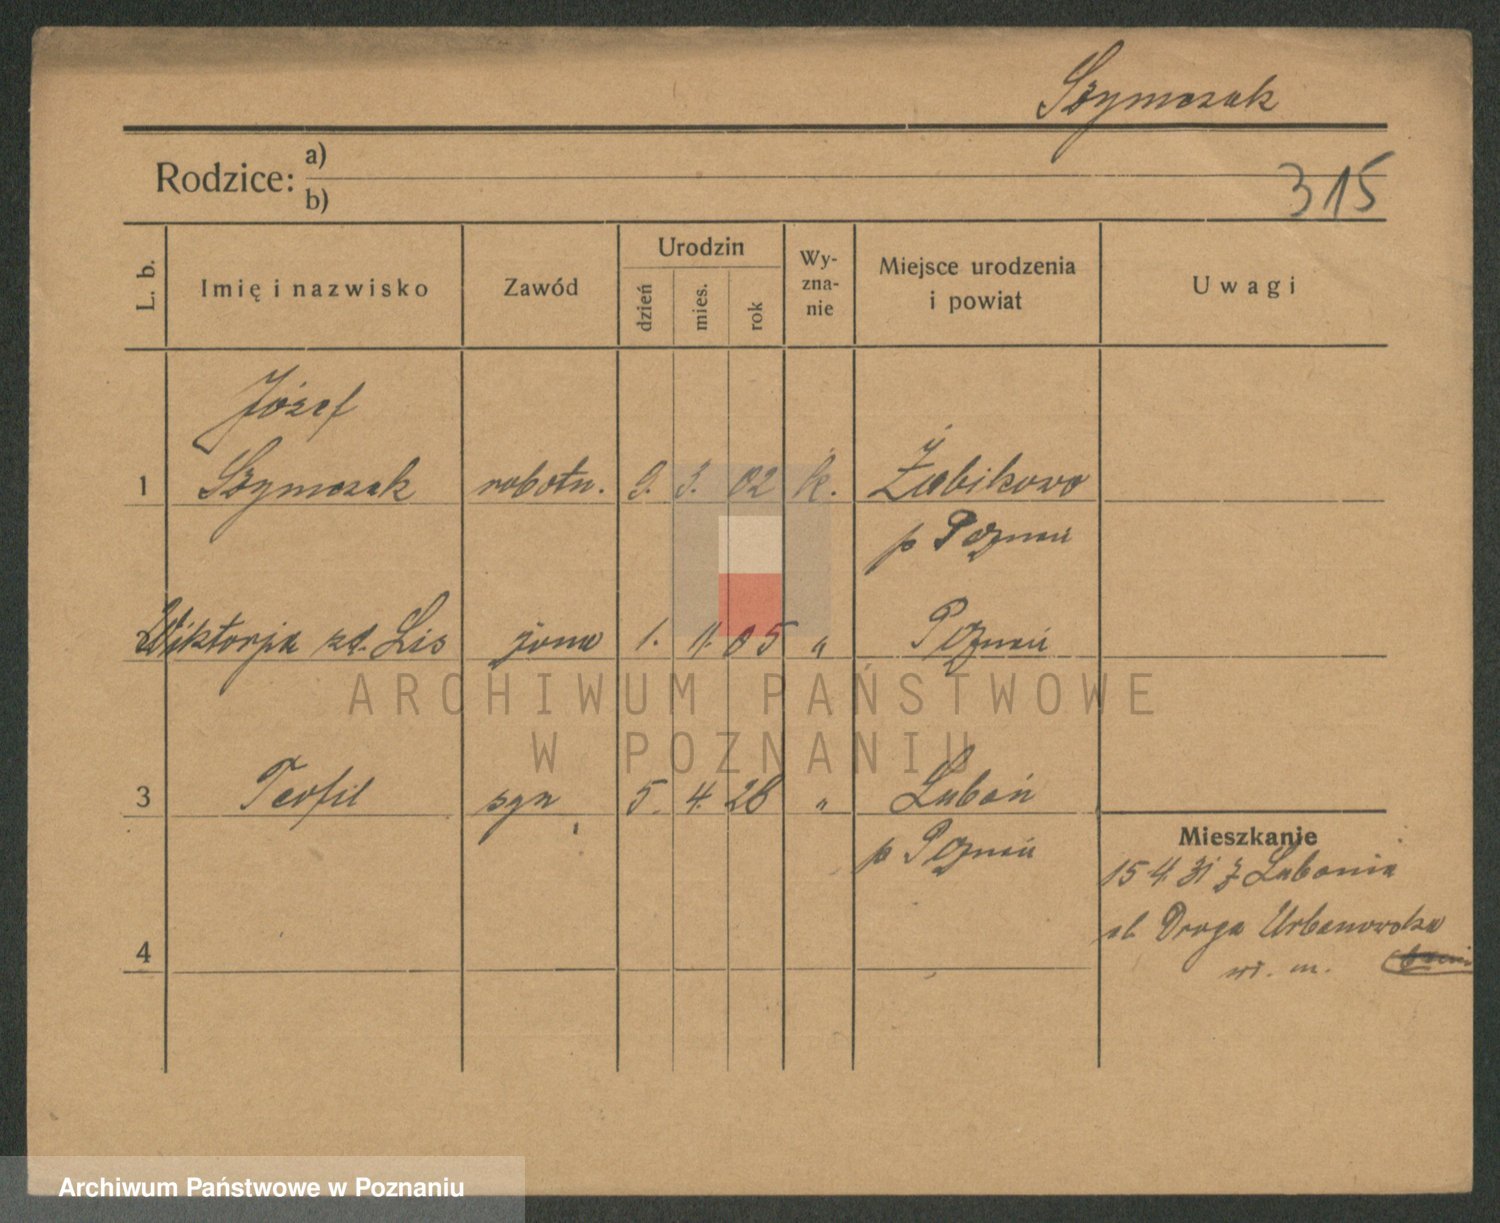 Szymczak
Rodzice: a)
b)
315
L. b.
Imię i nazwisko
Zawód
Urodzin
dzień
mies.
rok
Wy-
zna-
nie
Miejsce urodzenia
i powiat
Uwagi
Józef
1 Szymczak robotn. 9. 3. 02 k. Żabikowo
p Poznań
Wiktorja zd. Lis żona 1. 11. 05 " Poznań
ARCHIWUM PAŃSTWOWE
W POZNANIU
3 Teofil syn 5. 4. 28 " Luboń
p Poznań
Mieszkanie
15 4 31 z Lubonia
ul. Droga Urbanowska
4
wł. m.
Archiwum Państwowe w Poznaniu